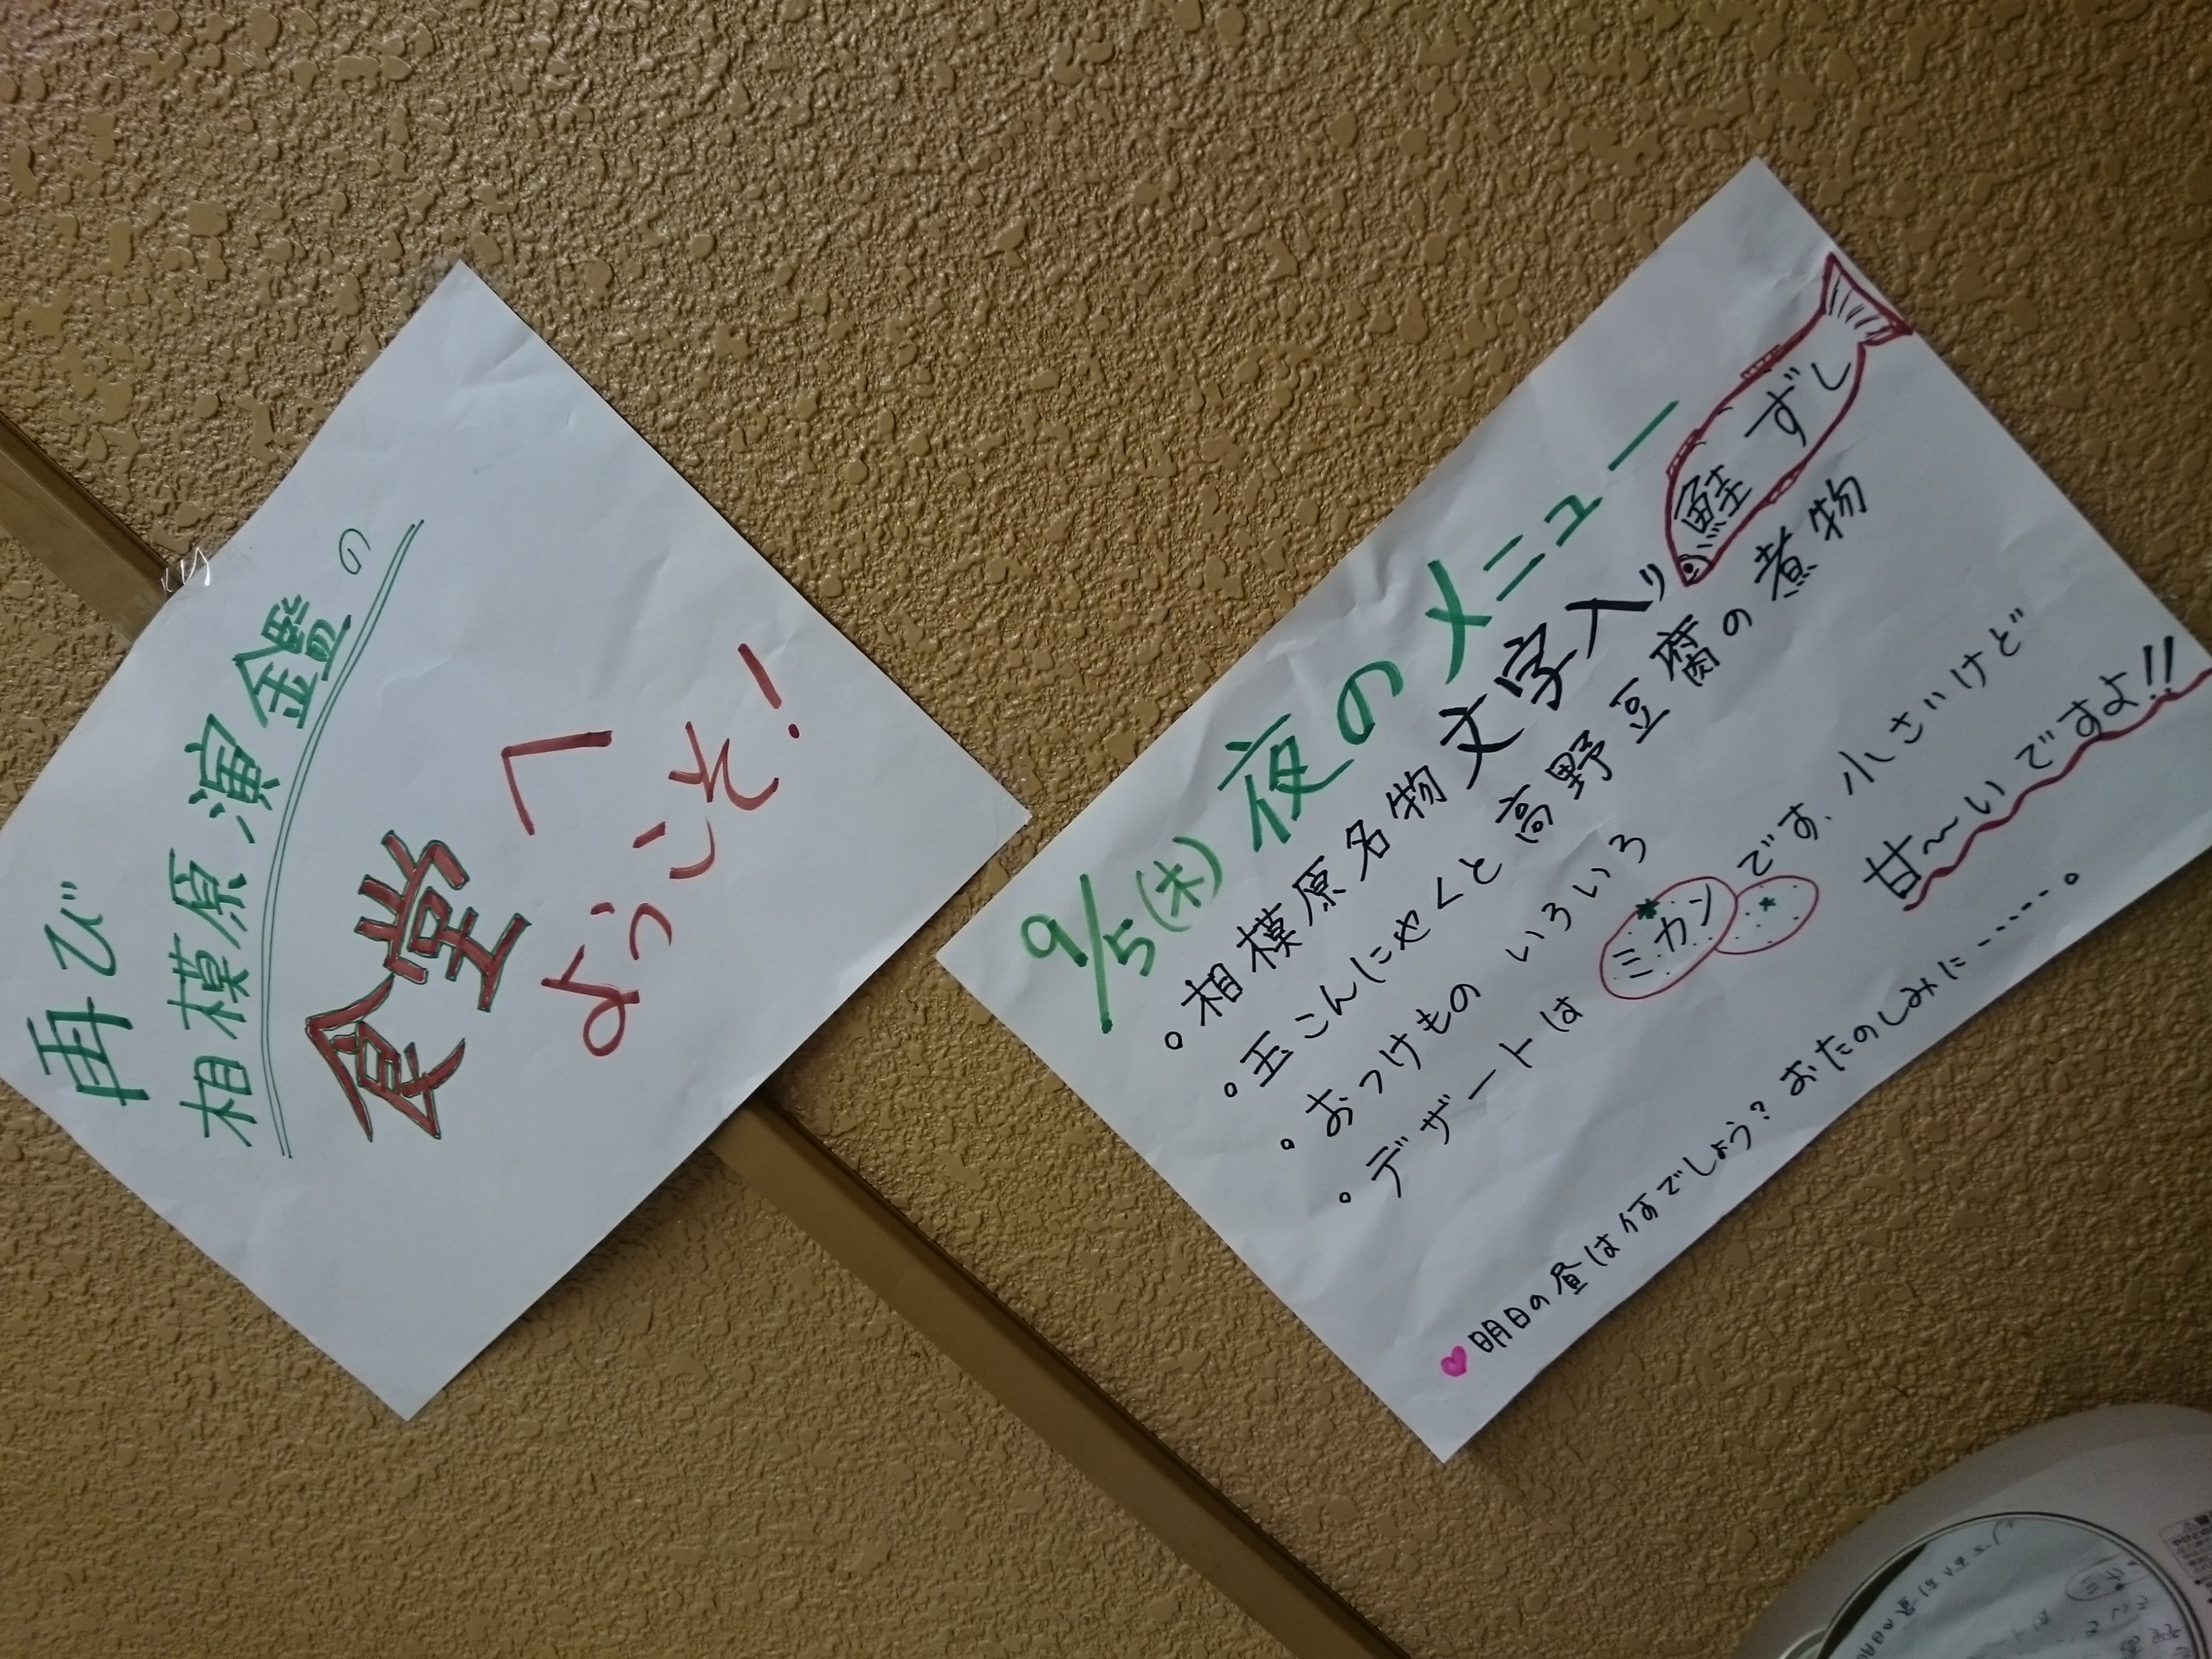 再び
相模原演鑑の
食堂へ
ようこそ！
9/5(木) 夜のメニュー
。相模原名物文字入り鮭ずし
。玉こんにゃくと高野豆腐の煮物
。おつけもの いろいろ
。デザートは ミカン です. 小さいけど
甘〜いですよ!!
♥明日の昼は何でしょう？おたのしみに……。